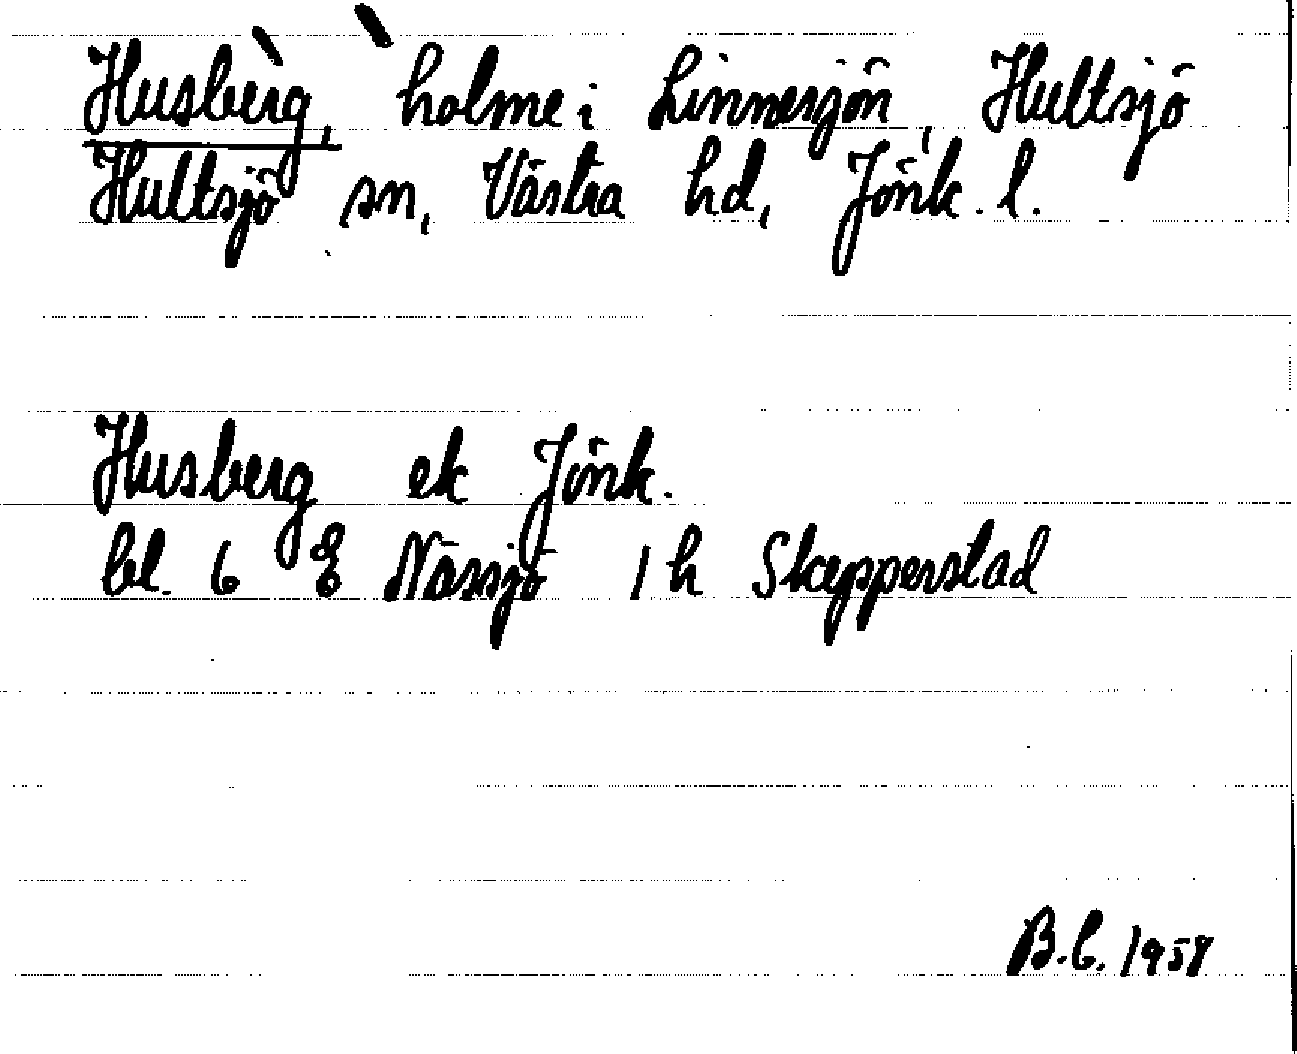 Husberg, holme i Linnesjön, Hultsjö
Hultsjö sn, Västra hd, Jönk. l.
Husberg ek Jönk.
bl. 6 E Nässjö 1 h Skepperstad
B.C. 1958